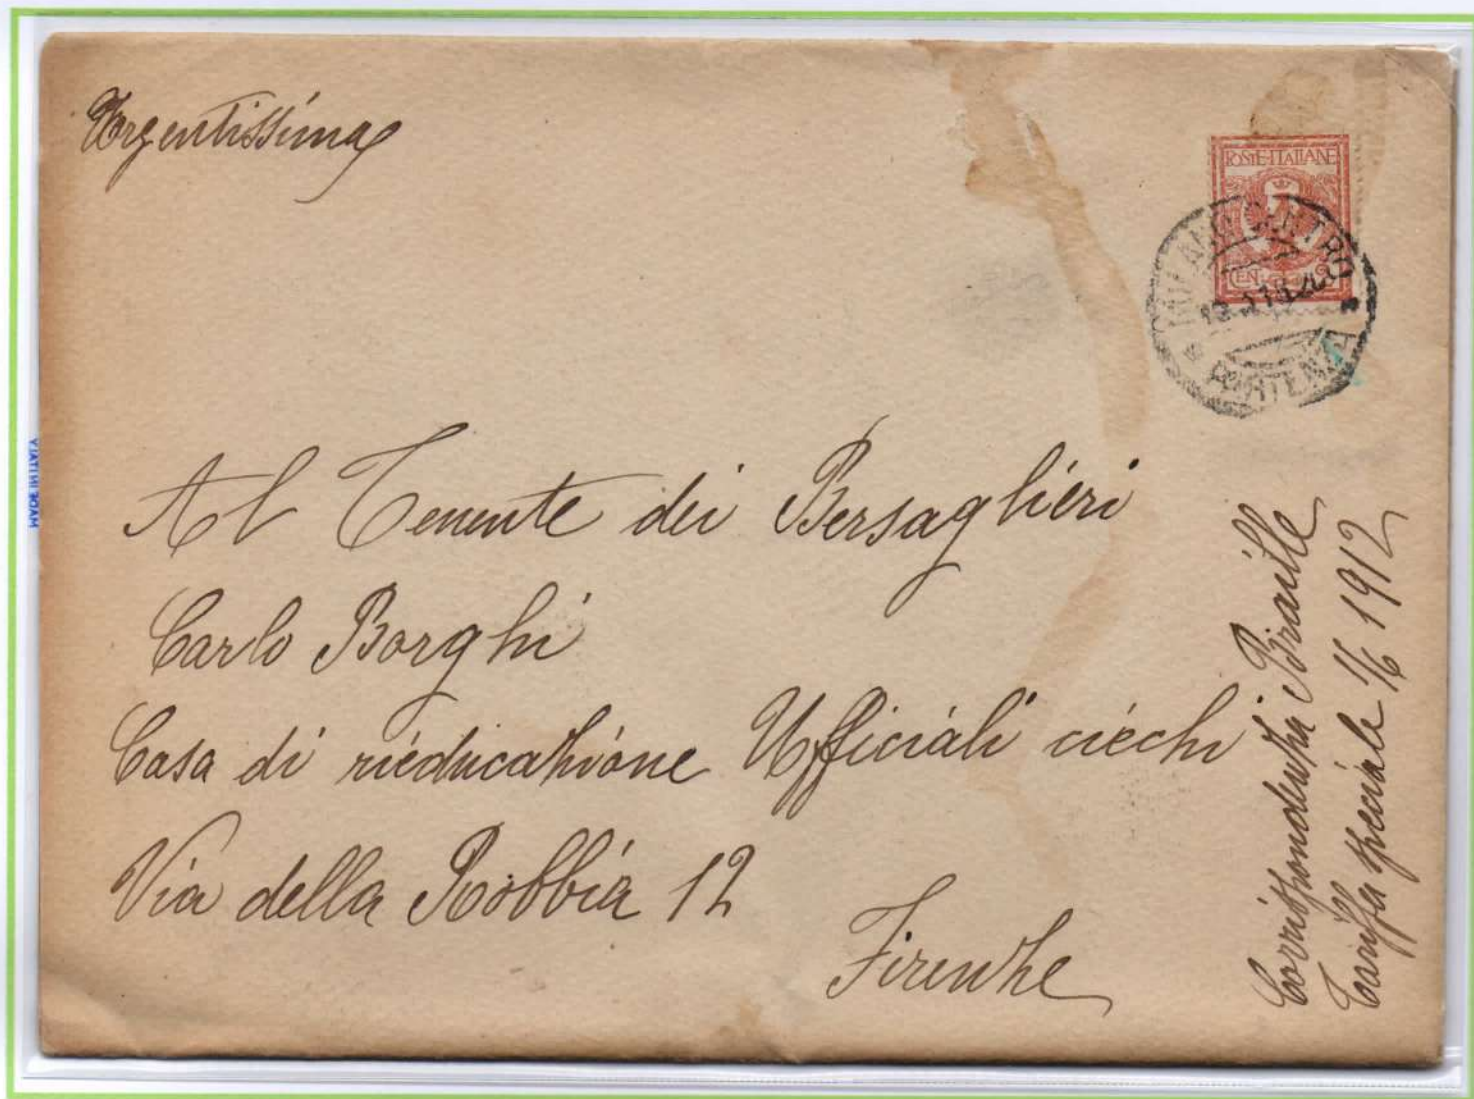 Urgentissima
POSTE·ITALIANE
CENT. 2
MILANO CENTRO
PARTENZA
Al Tenente dei Bersaglieri
Carlo Borghi
Casa di rieducazione Ufficiali ciechi
Via della Robbia 12
Firenze
Corrispondenza Braille
Tariffa speciale 1/6 1912
MADE IN ITALY